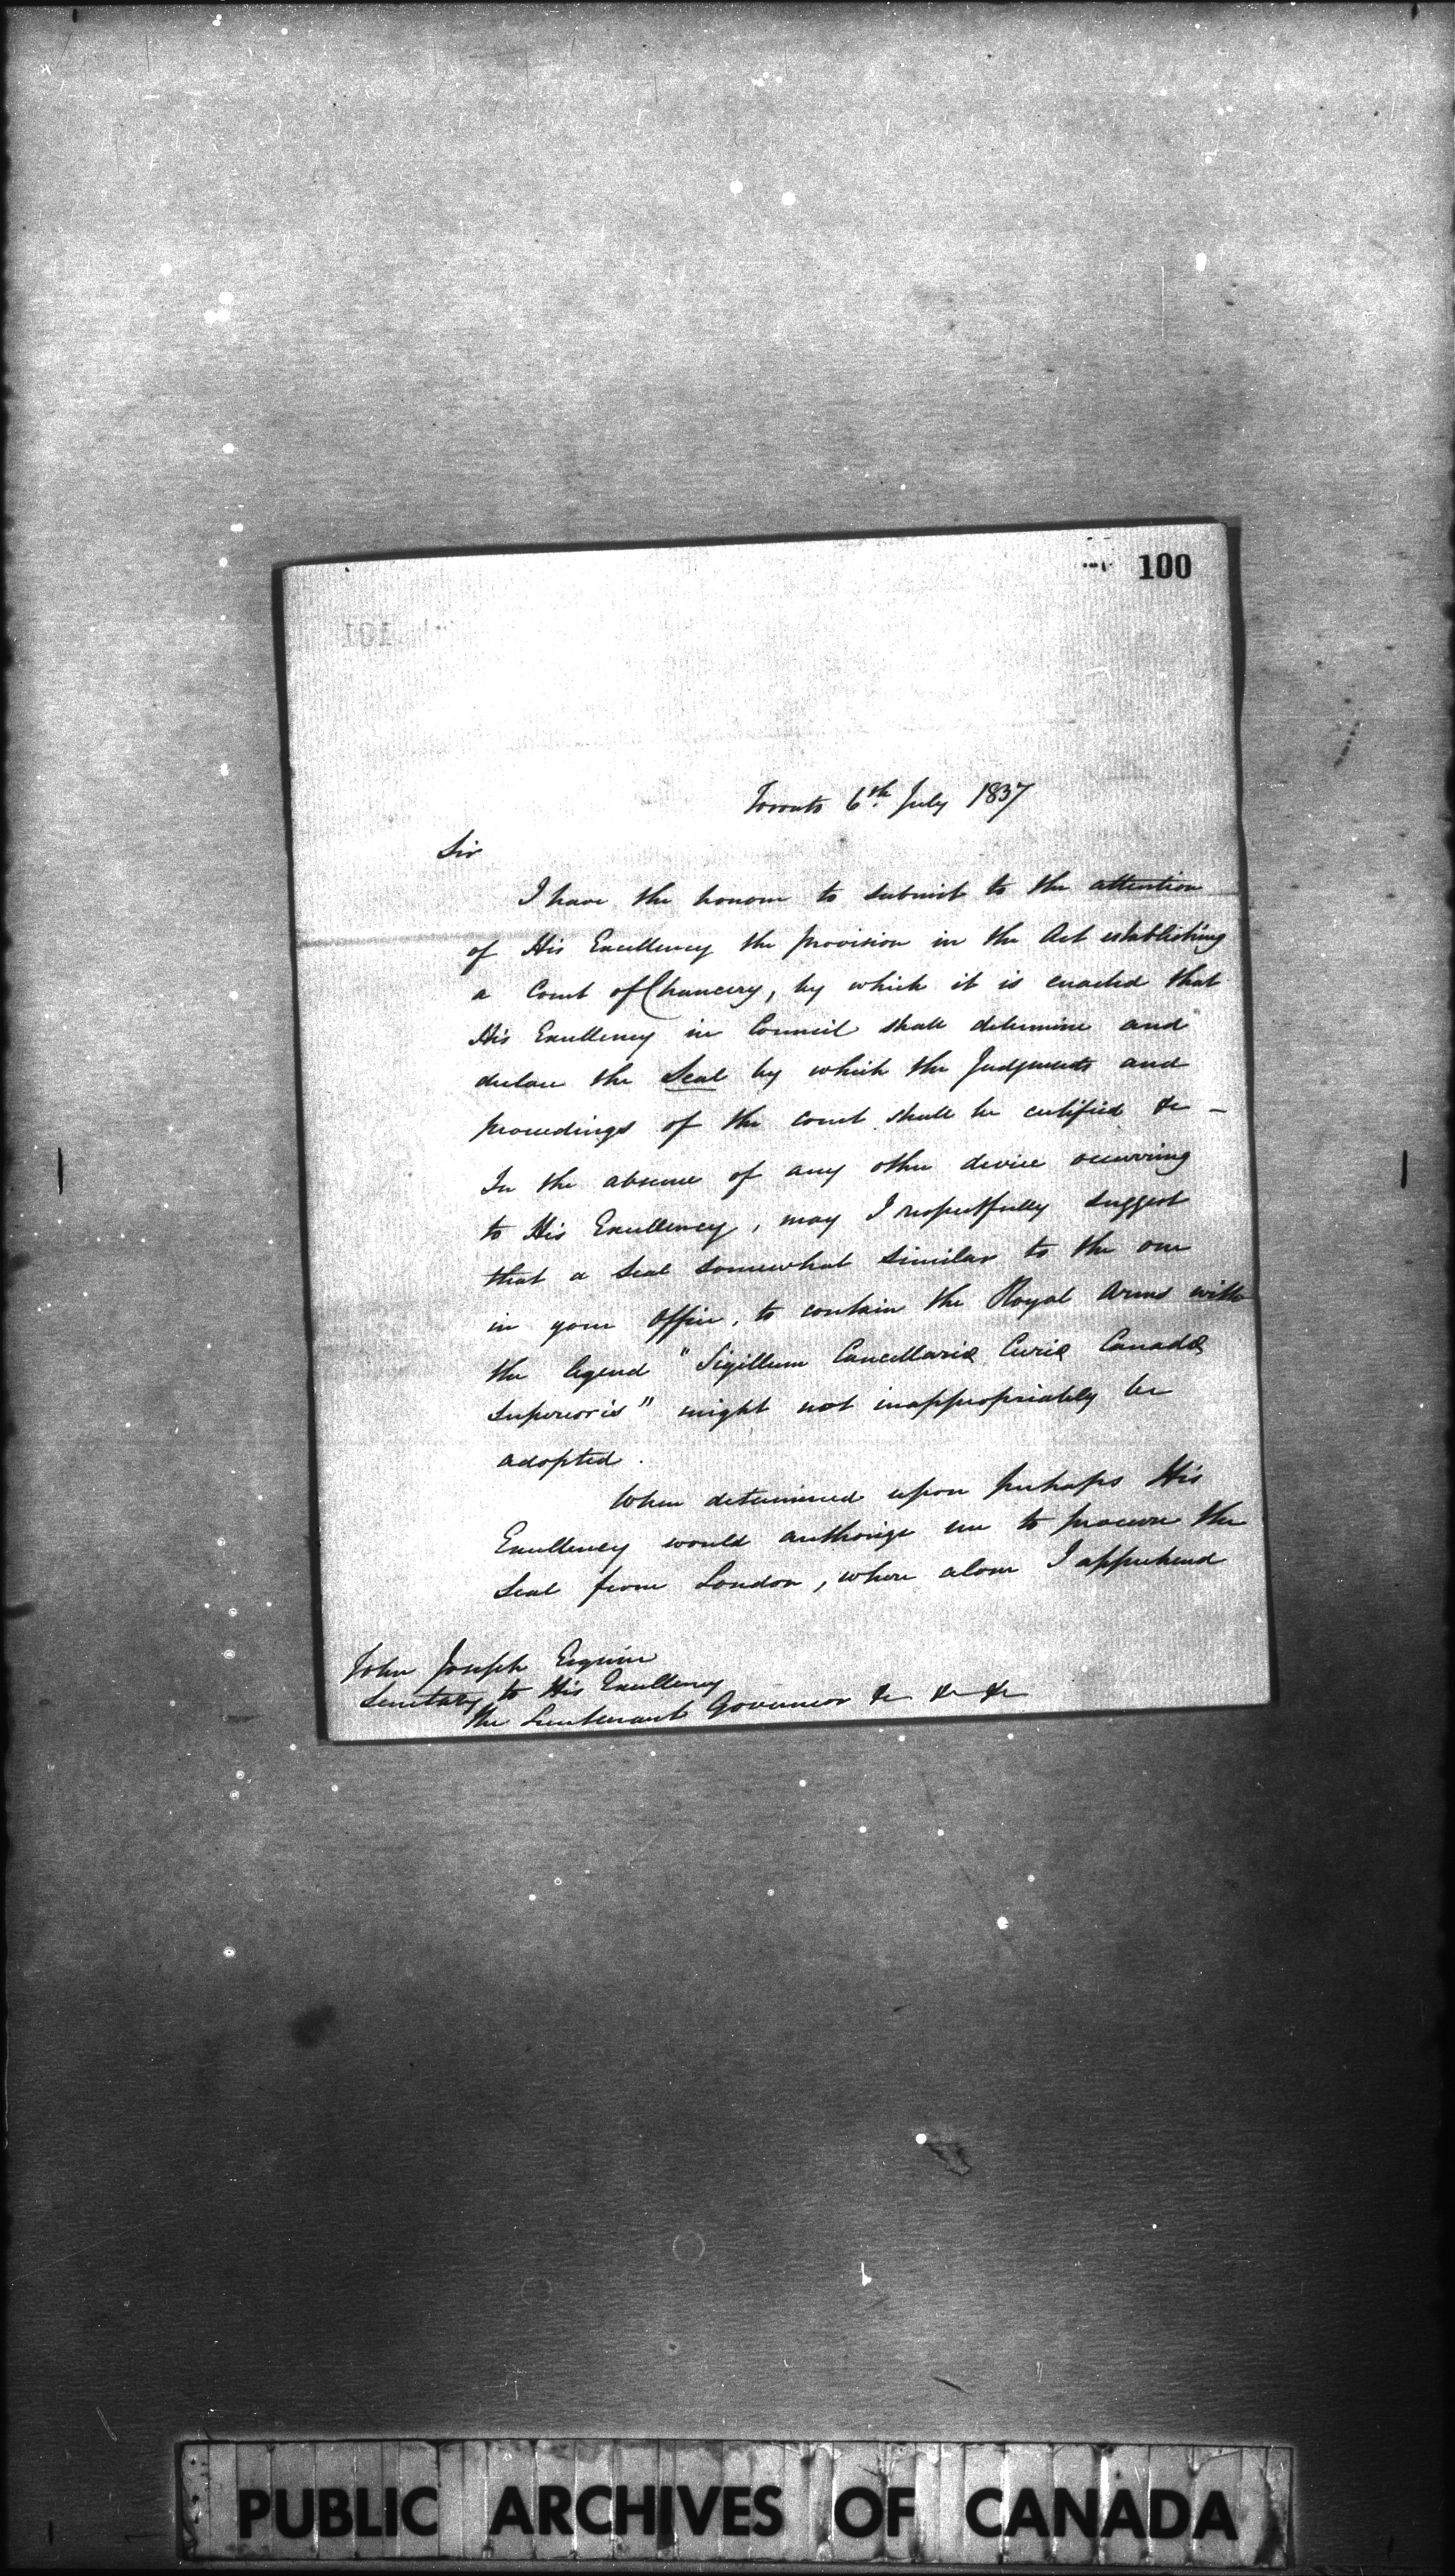 100
101
Toronto 6th July 1837
Sir
I have the honour to submit to the attention
of His Excellency the provision in the Act establishing
a Court of Chancery, by which it is enacted that
His Excellency in Council shall determine and
declare the Seal by which the Judgments and
proceedings of the court shall be certified &c –
In the absence of any other device occurring
to His Excellency, may I respectfully suggest
that a Seal somewhat similar to the one
in your Office, to contain the Royal Arms with
the legend "Sigillum Cancellariæ Curiæ Canadæ
Superioris" might not inappropriately be
adopted.
When determined upon perhaps His
Excellency would authorize me to procure the
Seal from London, where alone I apprehend
John Joseph Esquire
Secretary to His Excellency
the Lieutenant Governor &c &c &c
PUBLIC ARCHIVES OF CANADA